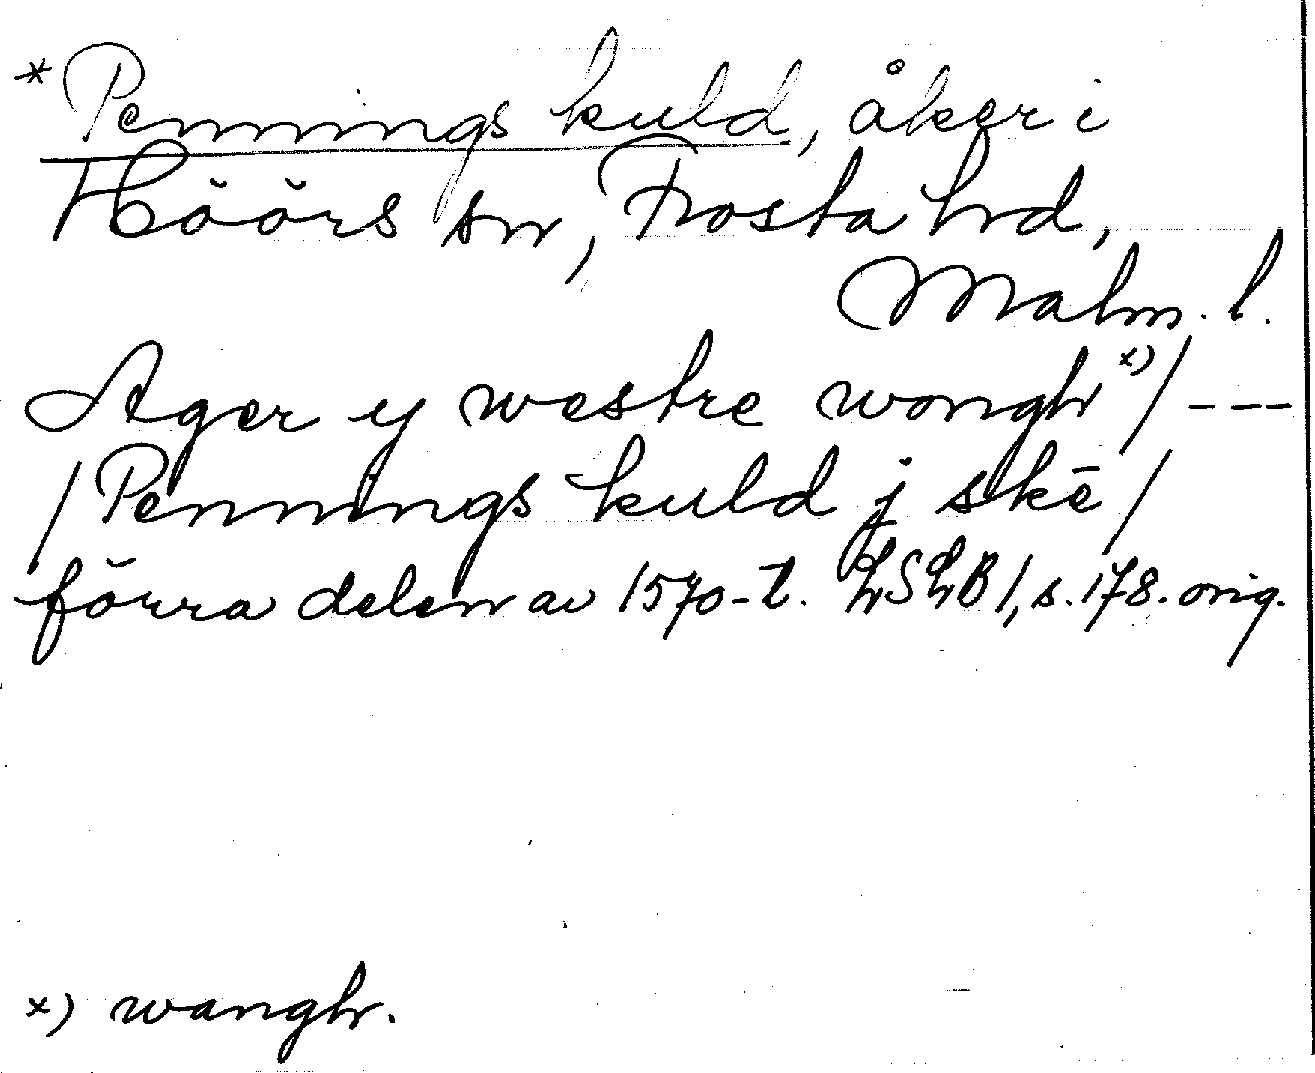 * Pennings kuld, åker i
Höörs sn, Frosta hrd,
Malm. l.
Ager y westre wongh x) / ---
/ Pennings kuld j skē /
förra delen av 1570-t. LSLB 1, s. 178. orig.
x) wangh.